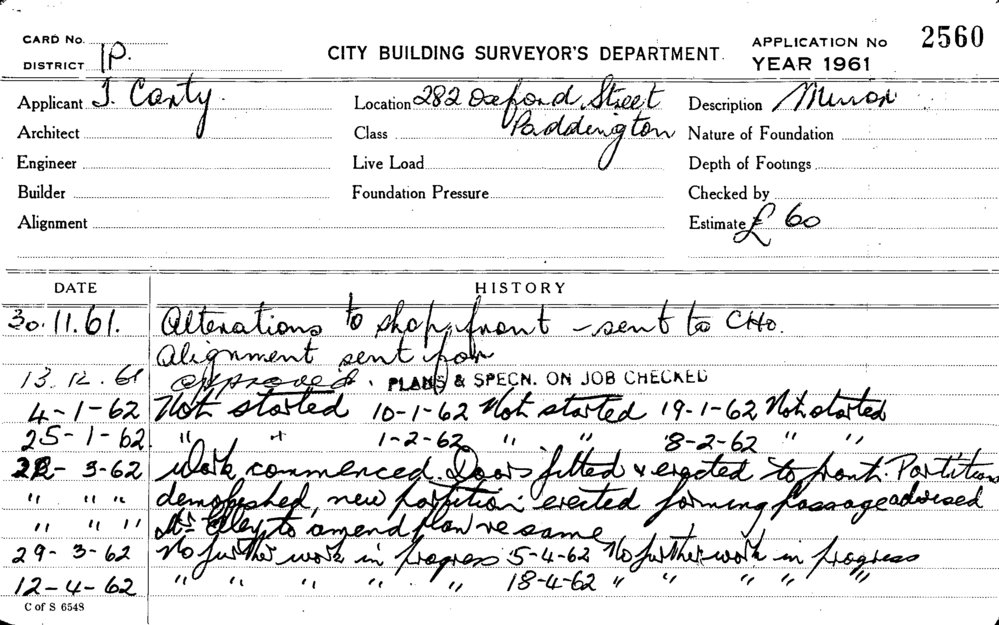 CARD No.
DISTRICT 1P.
CITY BUILDING SURVEYOR'S DEPARTMENT.
APPLICATION No 2560
YEAR 1961
Applicant J. Carty. Location 282 Oxford Street Description Minor
Architect Class Paddington Nature of Foundation
Engineer Live Load Depth of Footings
Builder Foundation Pressure Checked by
Alignment Estimate £ 60
DATE HISTORY
30.11.61. Alterations to shop front - sent to CHO.
Alignment sent for
13.12.61 approved. PLANS & SPECN. ON JOB CHECKED
4-1-62 Not started 10-1-62 Not started 19-1-62 Not started
25-1-62 " " 1-2-62 " " 8-2-62 " "
22-3-62 Work commenced. Doors fitted & erected to front. Partitions
" " " demolished, new partition erected forming passage advised
" " " Mr to amend plan re same
29-3-62 No further work in progress 5-4-62 No further work in progress
12-4-62 " " " " " 18-4-62 " " " " "
C of S 6548